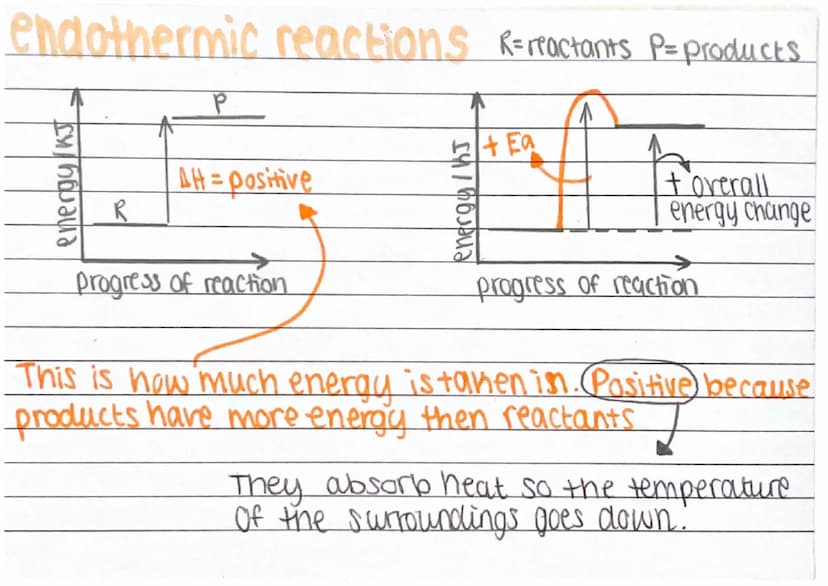 endothermic reactions
R=reactants P=products
energy/kJ
P
R
ΔH = positive
progress of reaction
energy/kJ
+ Ea
+ overall
energy change
progress of reaction
This is how much energy is taken in. Positive because
products have more energy then reactants
They absorb heat so the temperature
of the surroundings goes down.